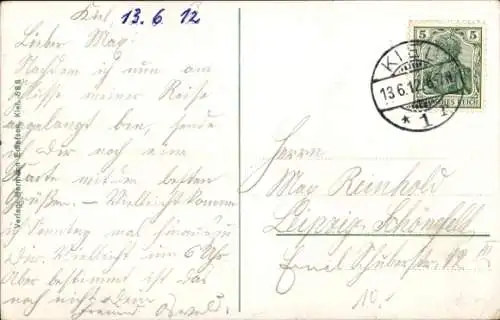 Kiel, 13.6.12
Lieber Max!
Nachdem ich nun am
Schlusse meiner Reise
angelangt bin, sende
ich Dir noch eine
Karte mit den besten
Grüßen. – Vielleicht komme
ich Sonntag mal hinaus zu
Dir. Vielleicht um 6 Uhr
Aber bestimmt ist das
noch nicht. Dein
Freund Oswald.
Verlag: Hermann Kiel.
5 5
KIEL
13.6.12
DEUTSCHES REICH
* 1
Herrn
Max Reinhold
Leipzig-Schönefeld
Schubertstr. 19 III
10.-